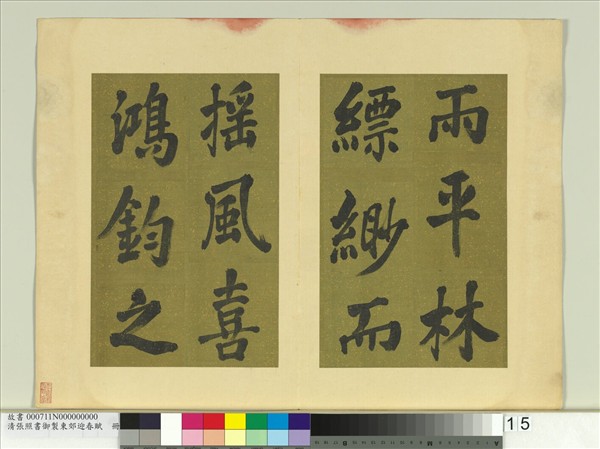 雨平林
縹緲而
揺風喜
鴻鈞之
故書 000711N000000000
清張照書御製東郊迎春賦 冊
15